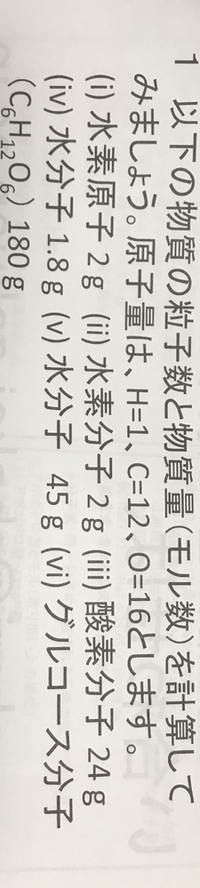 1 以下の物質の粒子数と物質量(モル数)を計算して
みましょう。原子量は、H=1、C=12、O=16とします。
(i) 水素原子 2 g (ii) 水素分子 2 g (iii) 酸素分子 24 g
(iv) 水分子 1.8 g (v) 水分子 45 g (vi) グルコース分子
(C₆H₁₂O₆) 180 g